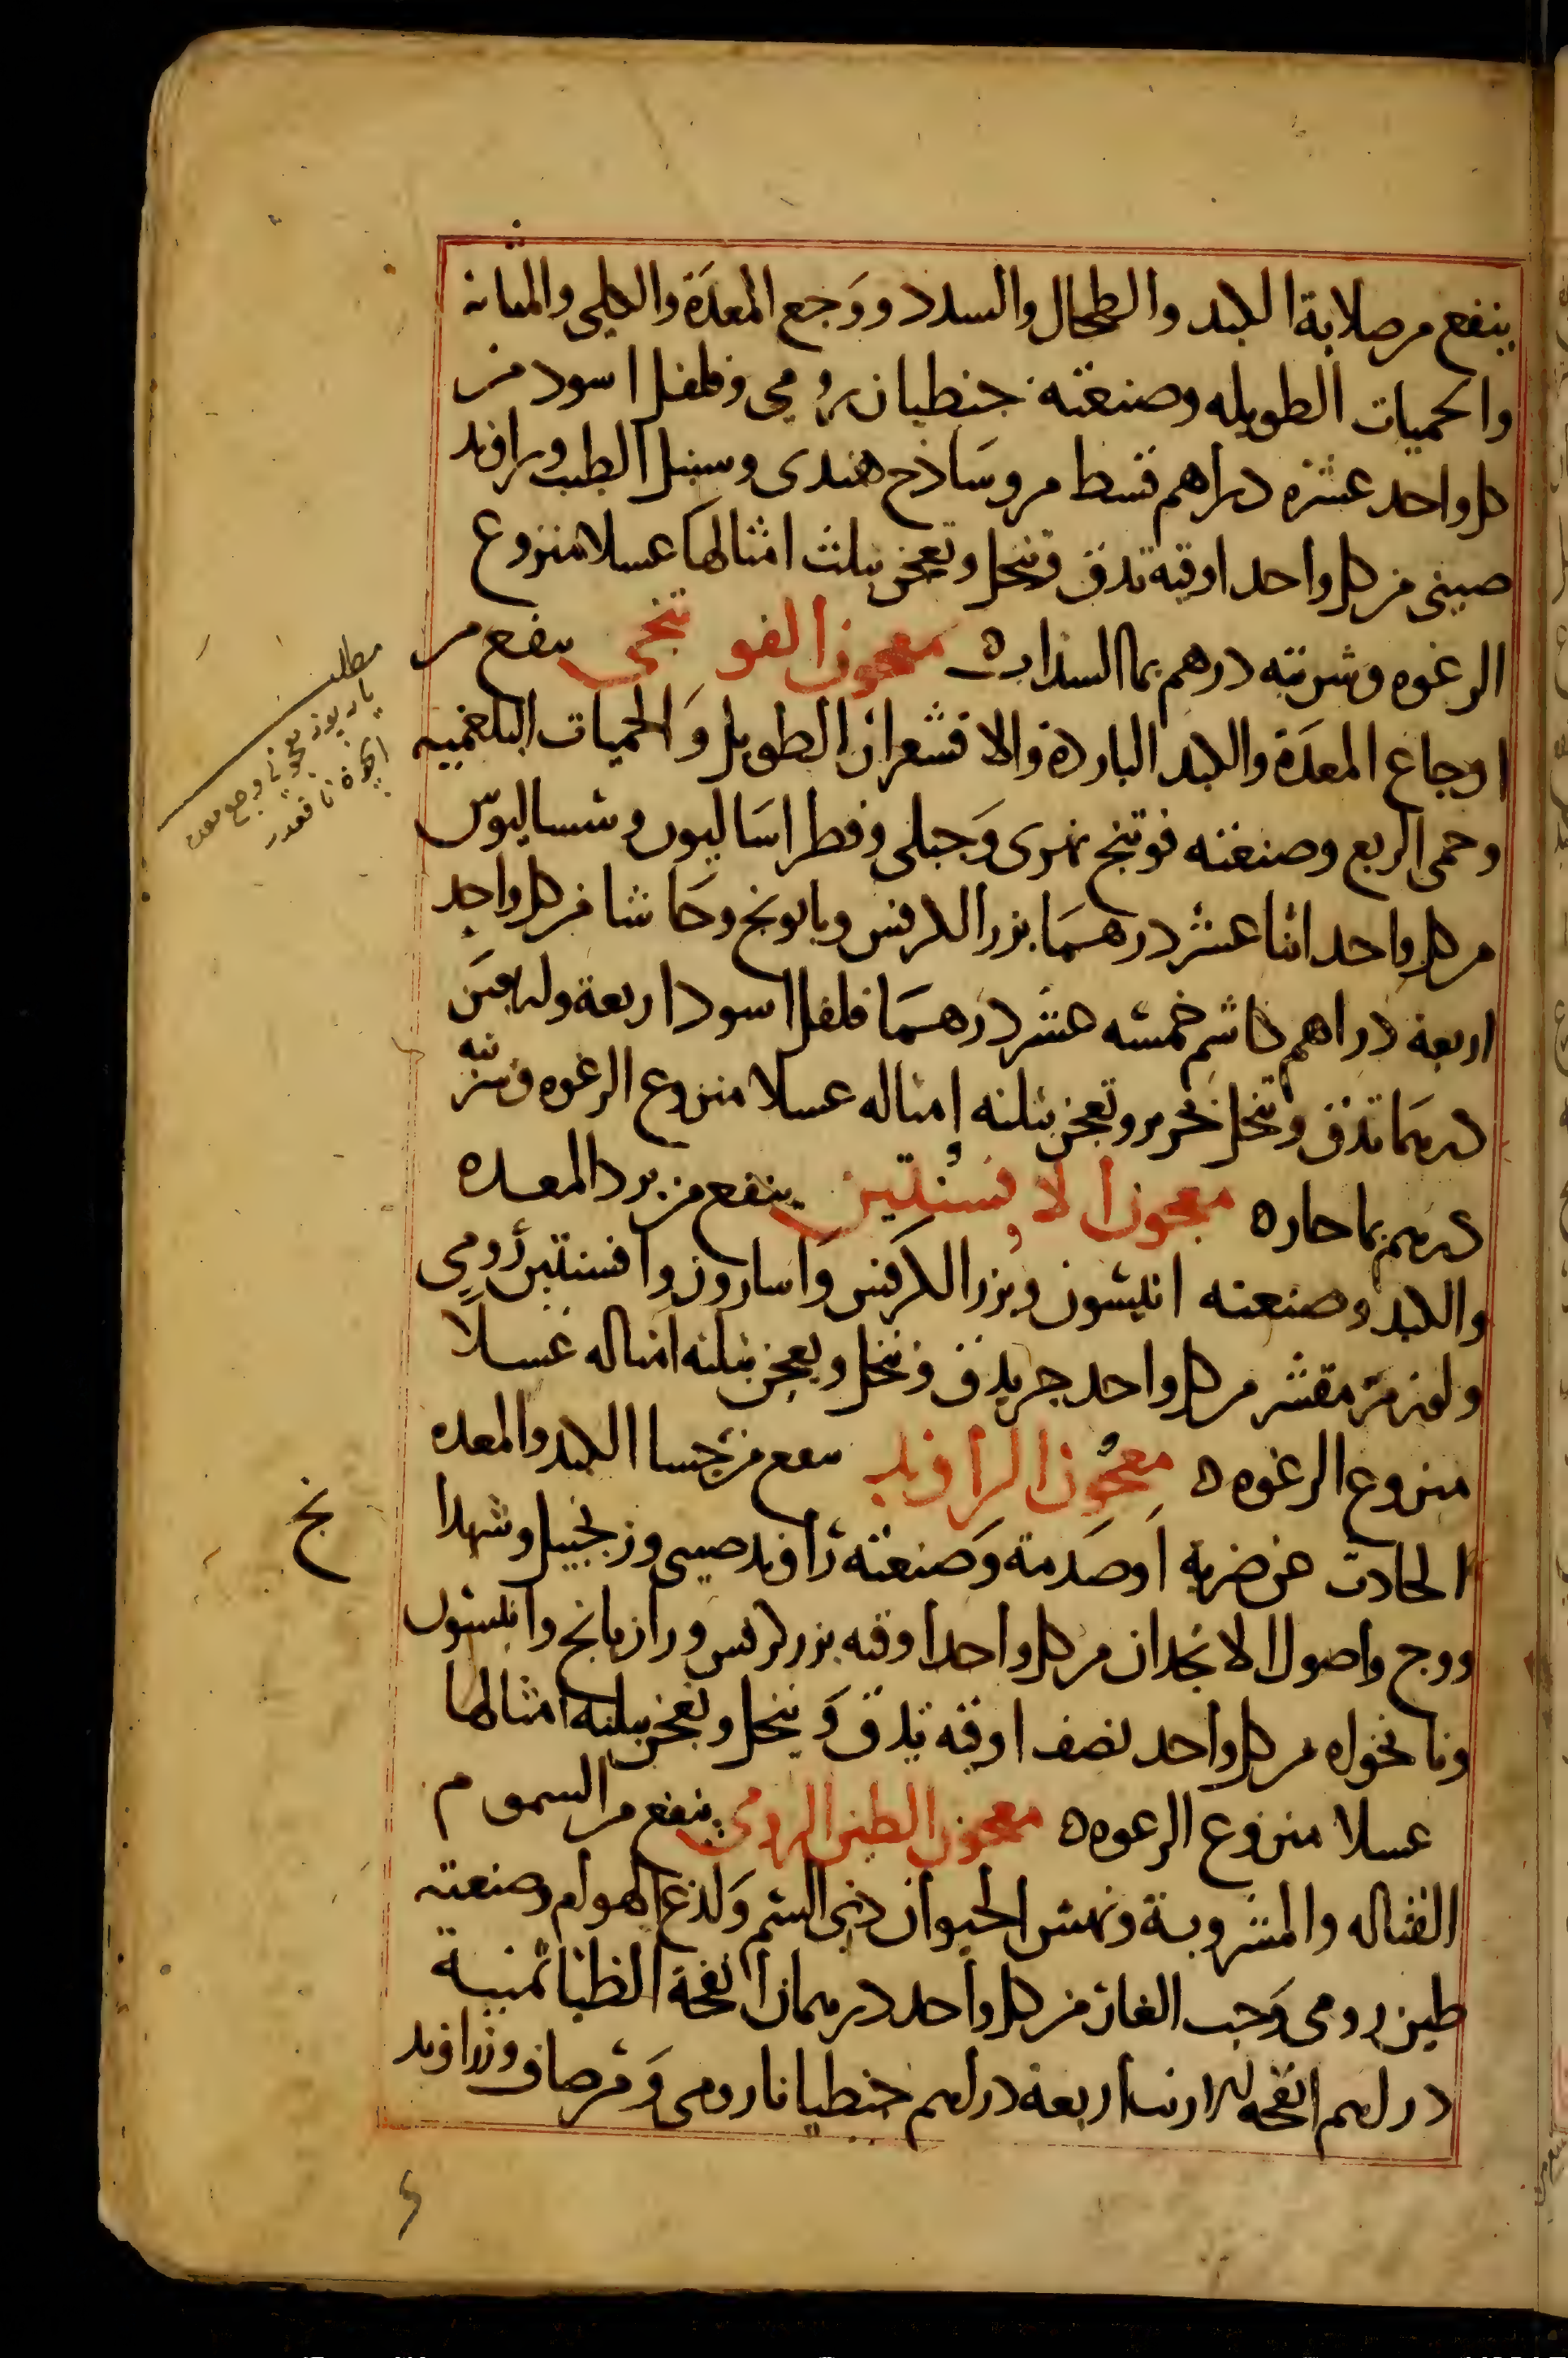 ينفع من صلابة الكبد والطحال والسدد ووَجع المعدَة والكلى والمثانه
والحميات الطويله وصنعته جنطيان رومي وفلفل اسود من
كل واحد عشره دراهم قسط مر وسَاذج هندى وسنبل الطيب وراوند
صينى من كل واحد اوقيه تدق وتنخل وتعجن بثلث امثالهَا عسلا منزوع
الرغوه وشربته درهم بما السذاب ه معجون الفوتنجى ينفع من
اوجاع المعدَة والكبد البارده والاقشعران الطويل وَالحميات البلغميه
وحمى الربع وصنعته فوتنج نهرى وَجبلى وفطراسَاليون وسساليوس
من كل واحد اثنا عشر درهمَا بزر الكرفس وبابونج وحَاشا من كل واحد
اربعة دراهم كاشم خمسه عشر درهمَا فلفل اسود اربعة واربعين
درهمَا تدق وتنخل بحرير وتعجن بثلثه امثاله عسلا منزوع الرغوه وشربته
درهم بما حاره معجون الافسنتين ينفع من برد المعده
والكبد وصنعته انيسون وبزر الكرفس وَاسارون وافسنتين رومي
ولوز مر مقشر من كل واحد جز يدق وتنخل ويعجن بثلثه امثاله عسلًا
منزوع الرغوه ه معجون الراوند ينفع من جسا الكبد والمعده
الحادث عن ضربة اَوصَدمة وَصنعته رَاوند صينى وزنجبيل وشهدا
ووج واصول الانجدان من كل واحد اوقيه بزر كرفس ورازيانج وانيسون
ونانخواه من كل واحد نصف اوقيه تدق وَينخل وتعجن بثلثه امثالها
عسلا منزوع الرغوه ه معجون الطين الرومى ينفع من السموم
القتاله والمشروبة ونهش الحيوان ذي السم وَلذع الهوام وصنعته
طين رومى وَحب الغار من كل واحد درهمان انفحة الظبا ثمنية
دراهم انفحه الارنب اربعة دراهم جنطيانا رومى وَمر صاف وزراوند
مطلب
نخ